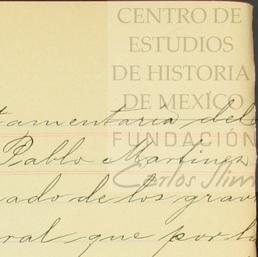 CENTRO DE
ESTUDIOS
DE HISTORIA
DE MEXÍCO
FUNDACIÓN
Carlos Slim
tamentaria del
Pablo Martinez
ado de los grav
ral que por la